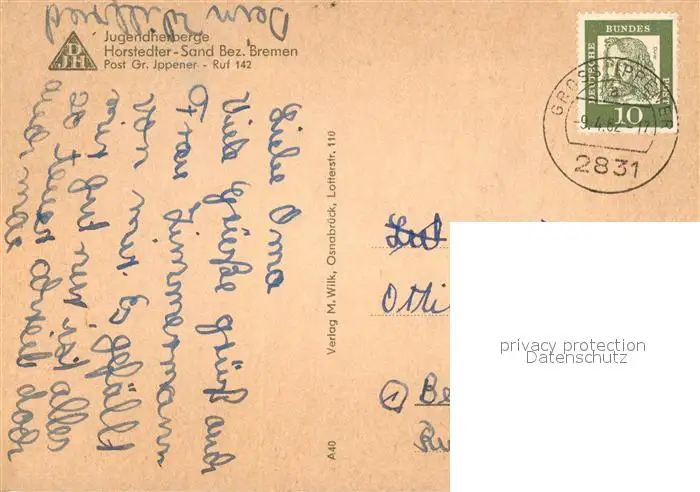 Jugendherberge
Horstedter-Sand Bez. Bremen
Post Gr. Jppener - Ruf 142
DJH
Liebe Oma
Viele Grüße grüß auch
Frau Zimmermann
von mir. Es gefällt
mir gut nur ist alles
so teuer
auch mal
Dein Wilfried
Verlag M. Wilk, Osnabrück, Lotterstr. 110
A40
DEUTSCHE
BUNDES
POST
10
-9.4.62-17
2831
Otti
1
Be
privacy protection
Datenschutz